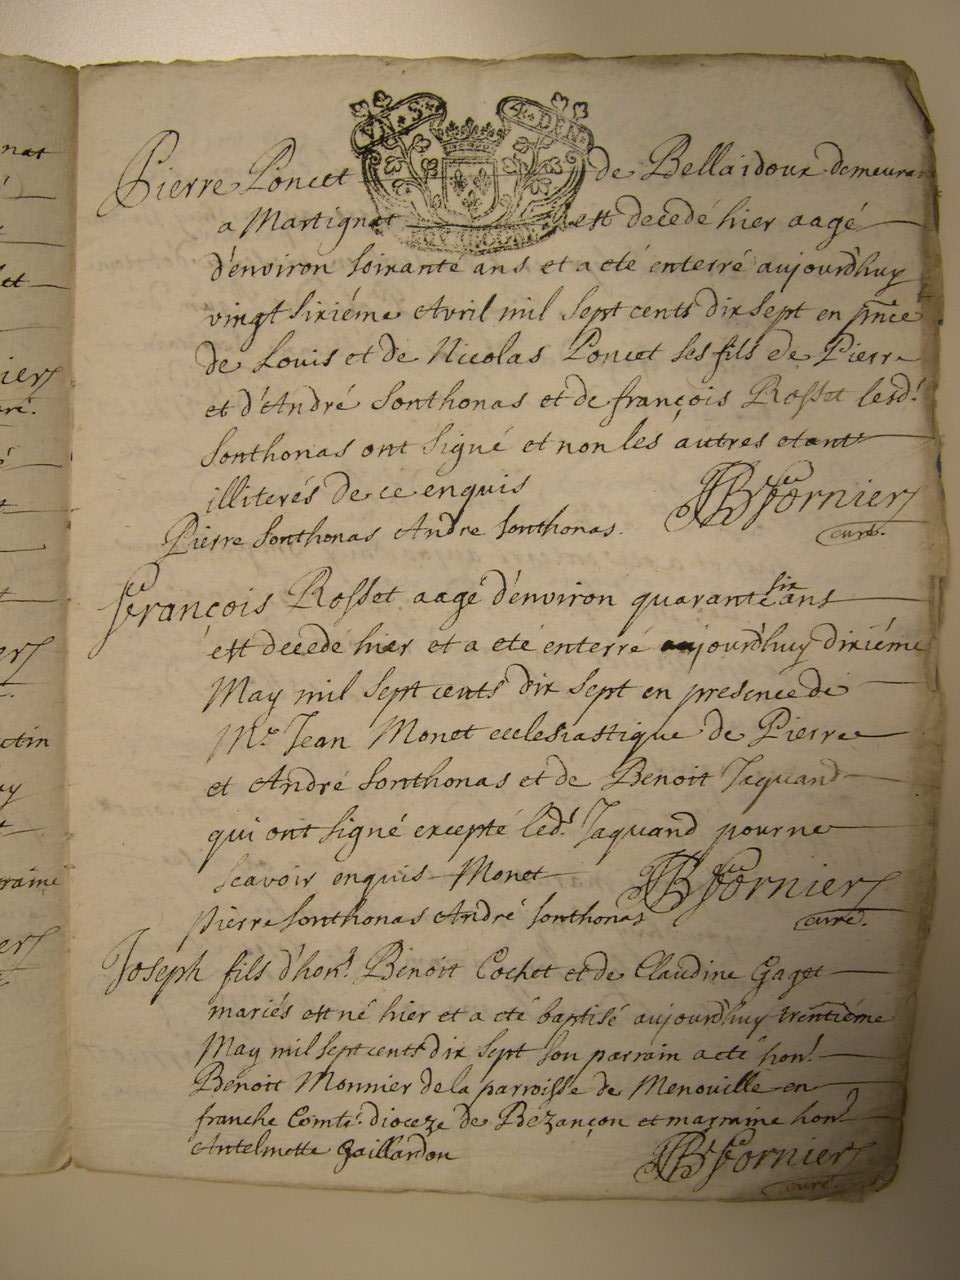 VN · S · 4 · DEN
Pierre Poncet de Bellaidoux demeurant
a Martignat est decedé hier aagé
d'environ soixante ans et a eté enterré aujourd'huy
vingt sixiéme Avril mil sept cents dix sept en pnce
de Louis et de Nicolas Poncet ses fils de Pierre
et d'André Sonthonas et de françois Rosset lesd.
Sonthonas ont signé et non les autres etant
illiterés de ce enquis
Fornier
curé.
Pierre Sonthonas Andre Sonthonas.
François Rosset aagé d'environ quarante six ans
est decedé hier et a eté enterré aujourd'huy dixiéme
May mil sept cents dix sept en presence de
Mre Jean Monet ecclesiastique de Pierre
et André Sonthonas et de Benoit Jaquand
qui ont signé excepté led. Jaquand pour ne
scavoir enquis Monet
Fornier
curé.
Pierre Sonthonas André Sonthonas
Joseph fils d'hon. Benoit Cochet et de Claudine Gaget
mariés est né hier et a eté baptisé aujourd'huy trentiéme
May mil sept cents dix sept son parrain a eté hon.
Benoit Monnier de la parroisse de Menouille en
franche Comté. dioceze de Bezançon et marraine hon.
Antelmette Gaillardon
Fornier
curé.